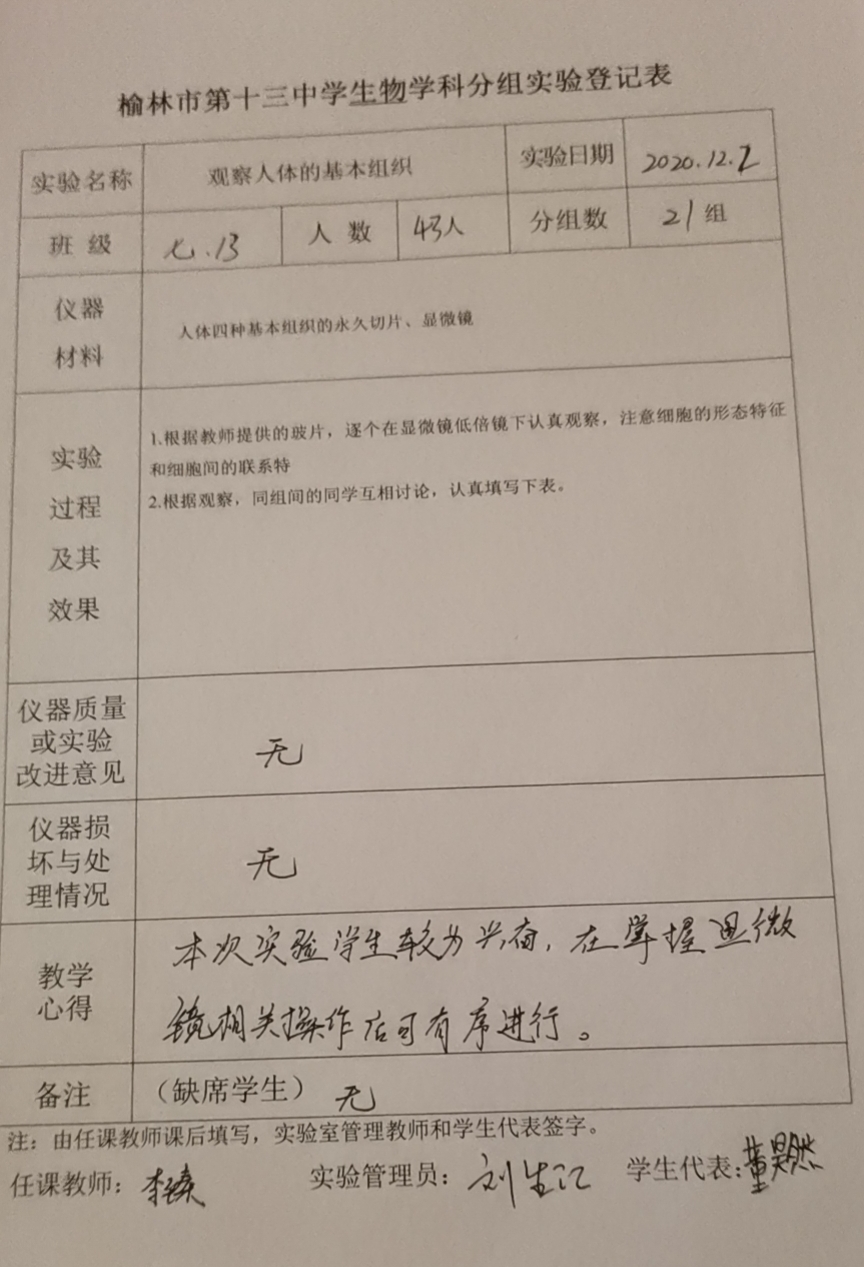 榆林市第十三中学生物学科分组实验登记表
实验名称 观察人体的基本组织 实验日期 2020.12.2
班 级 七.13 人 数 43人 分组数 21组
仪器
材料
人体四种基本组织的永久切片、显微镜
实验
过程
及其
效果
1.根据教师提供的玻片，逐个在显微镜低倍镜下认真观察，注意细胞的形态特征
和细胞间的联系特
2.根据观察，同组间的同学互相讨论，认真填写下表。
仪器质量
或实验
改进意见
无
仪器损
坏与处
理情况
无
教学
心得
本次实验学生较为兴奋，在掌握显微
镜相关操作后可有序进行。
备注 （缺席学生） 无
注：由任课教师课后填写，实验室管理教师和学生代表签字。
任课教师：李 实验管理员：刘生江 学生代表：董昊然